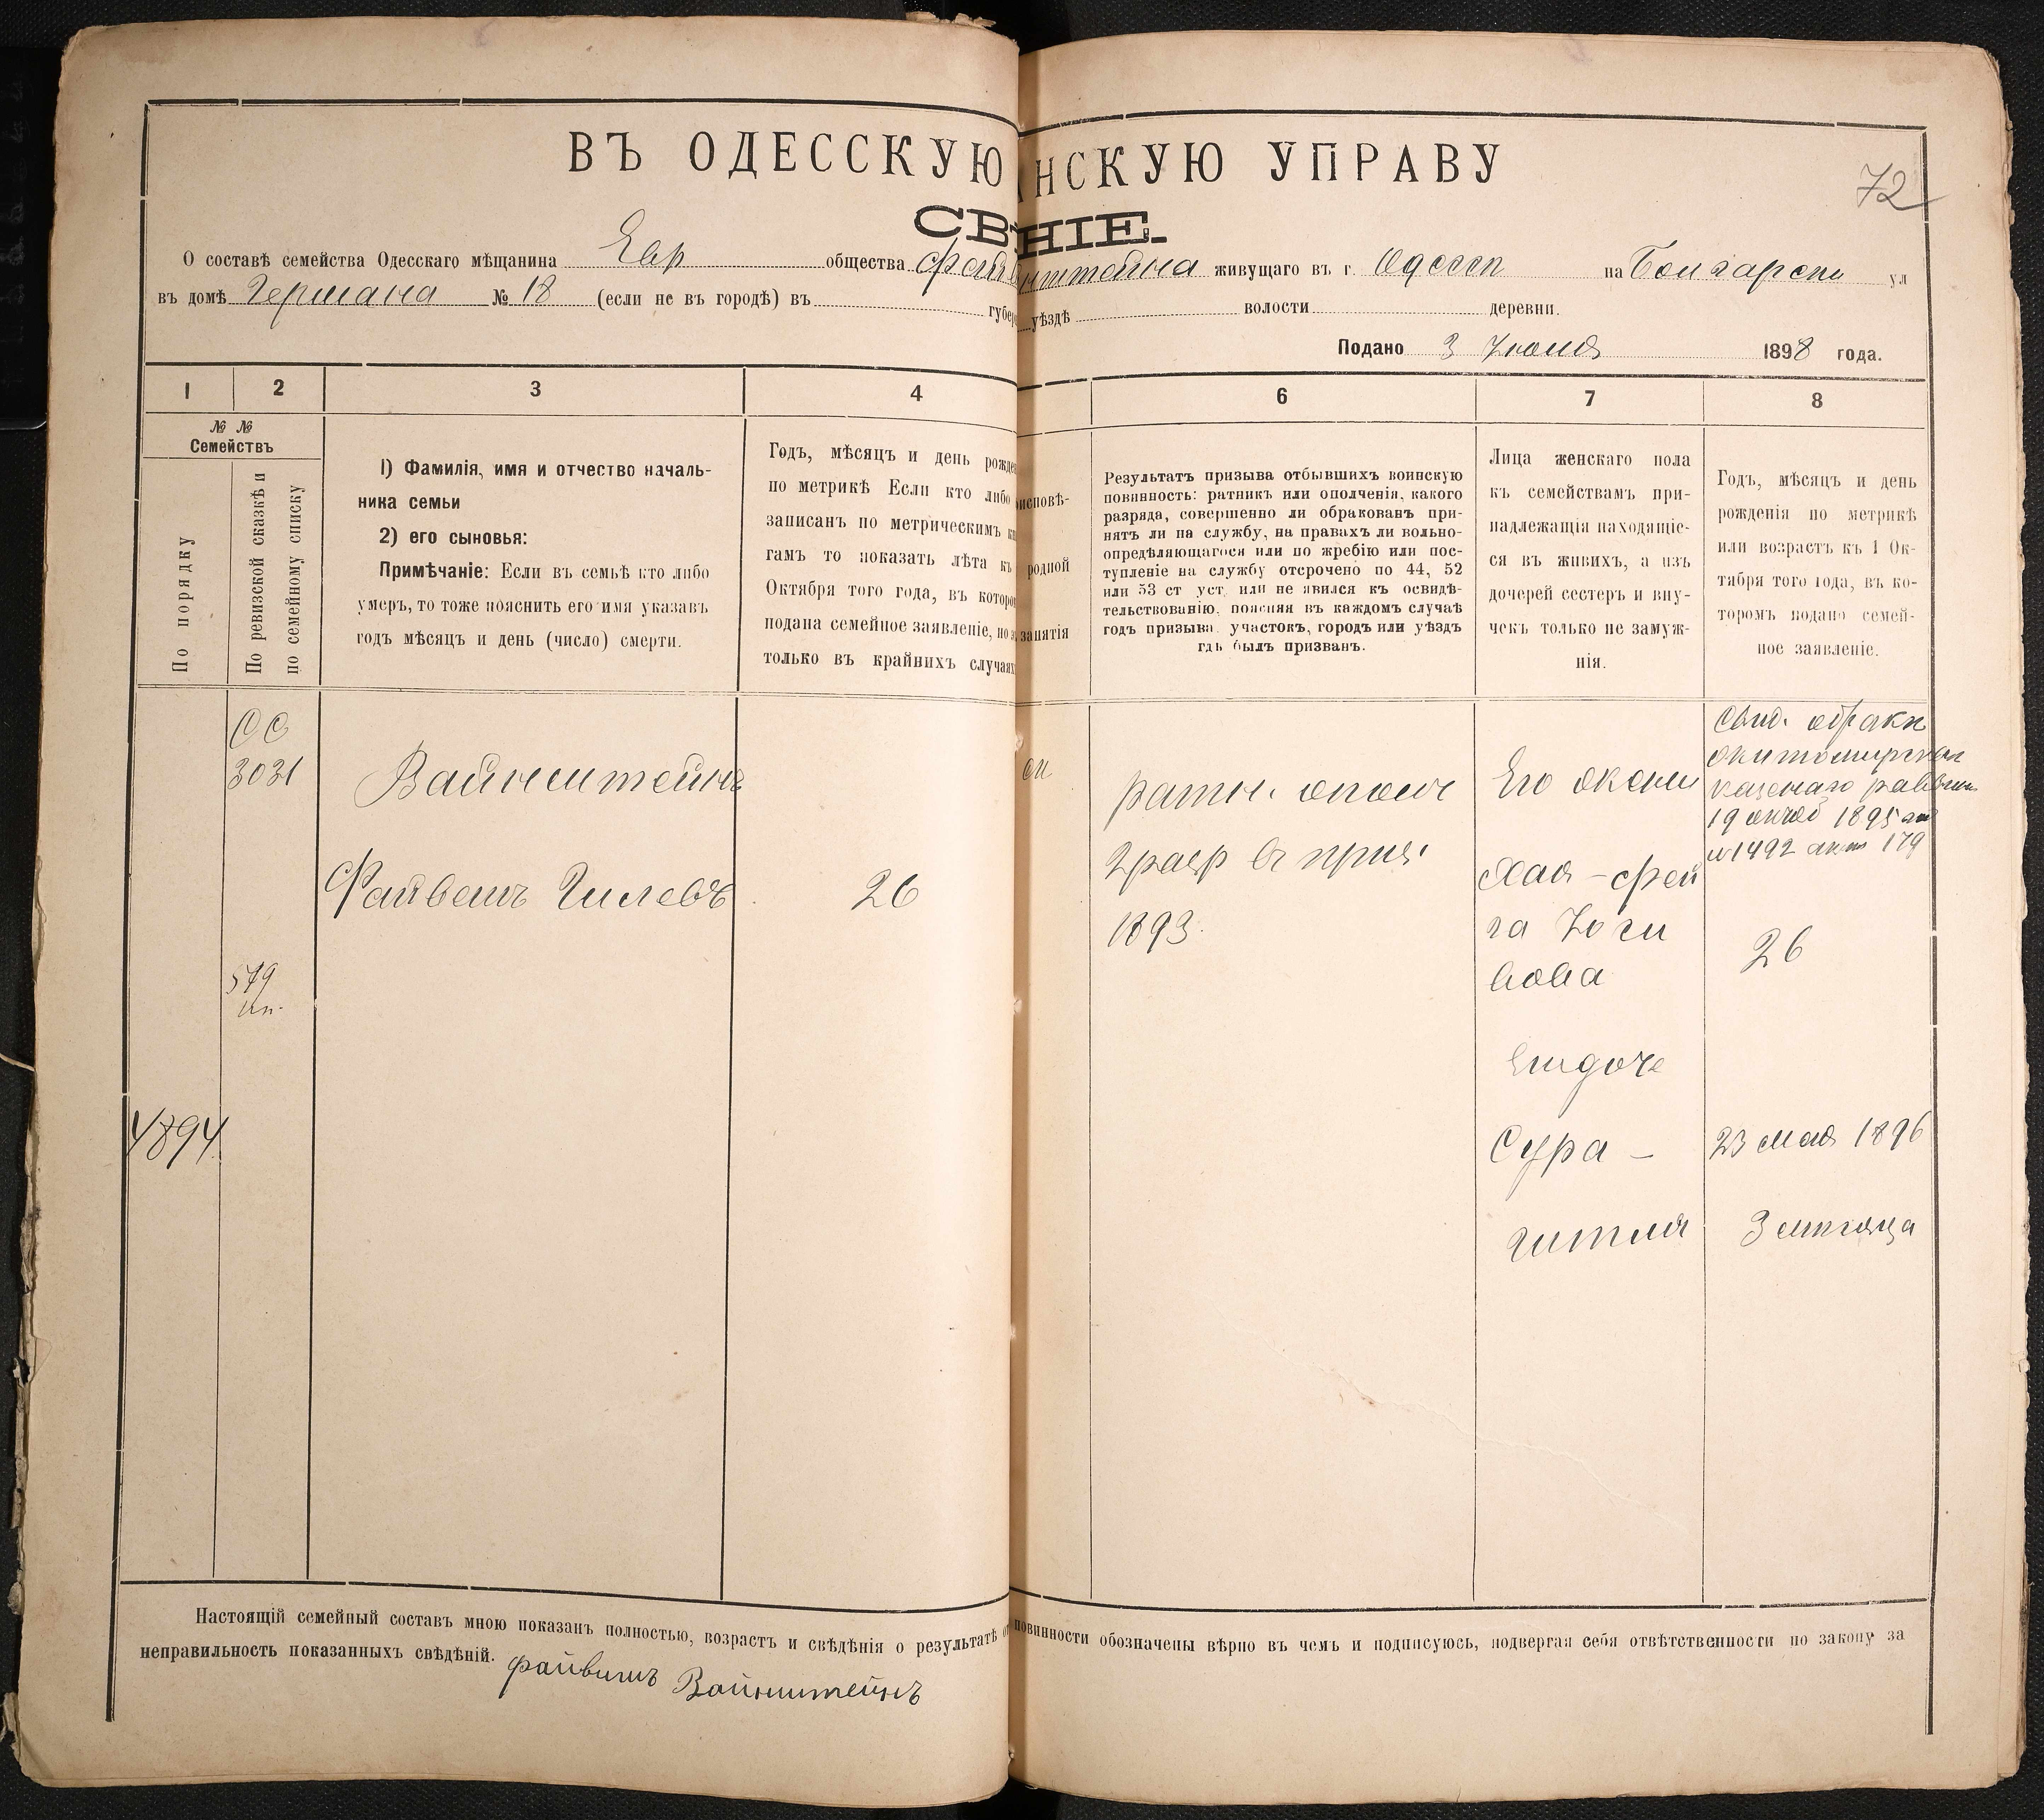 ВЪ ОДЕССКУЮ НСКУЮ УПРАВУ
72
СВ НІЕ.
О составѣ семейства Одесскаго мѣщанина Евр общества Файв нштейна живущаго въ г. Одессѣ на Болгарской ул
въ домѣ Германа № 18 (если не въ городѣ) въ губер уѣздѣ волости деревни.
Подано 3 Іюня 1898 года.
1 2 3 4 6 7 8
№ №
Семействъ
По порядку
По ревизской сказкѣ и
по семейному списку
1) Фамилія, имя и отчество началь-
ника семьи
2) его сыновья:
Примѣчаніе: Если въ семьѣ кто либо
умеръ, то тоже пояснить его имя указавъ
годъ мѣсяцъ и день (число) смерти.
Годъ, мѣсяцъ и день рожде
по метрикѣ Если кто либо
записанъ по метрическимъ кн
гамъ то показать лѣта къ
Октября того года, въ которо
подана семейное заявленіе, но э
только въ крайнихъ случаях
исповѣ-
родной
занятія
Результатъ призыва отбывшихъ воинскую
повинность: ратникъ или ополченія, какого
разряда, совершенно ли обракованъ при-
нятъ ли на службу, на правахъ ли вольно-
опредѣляющагося или по жребію или пос-
тупленіе на службу отсрочено по 44, 52
или 53 ст уст. или не явился къ освидѣ-
тельствованію, поясняя въ каждомъ случаѣ
годъ призыва, участокъ, городъ или уѣздъ
гдѣ былъ призванъ.
Лица женскаго пола
къ семействамъ при-
надлежащія находящіе-
ся въ живихъ, а изъ
дочерей сестеръ и вну-
чекъ только не замуж-
нія.
Годъ, мѣсяцъ и день
рожденія по метрикѣ
или возрастъ къ 1 Ок-
тября того года, въ ко-
торомъ подано семей-
ное заявленіе.
СС
3031
Вайнштейнъ
Файвешъ Гилевъ
26
579
4894
ратн. ополч
2 разр въ приз
1893.
Его жена
Хая-Фей
га Іоси
вова
Сура -
Гитля
Свид. о бракѣ
житомирскаго
казеннаго раввина
1895
№ 1492 179
26
23 мая 1896
3 мѣсяца
Настоящій семейный составъ мною показанъ полностью, возрастъ и свѣдѣнія о результатѣ о повинности обозначены вѣрно въ чемъ и подписуюсь, подвергая себя отвѣтственности по закону за
неправильность показанныхъ свѣдѣній. Файвишъ Вайнштейнъ